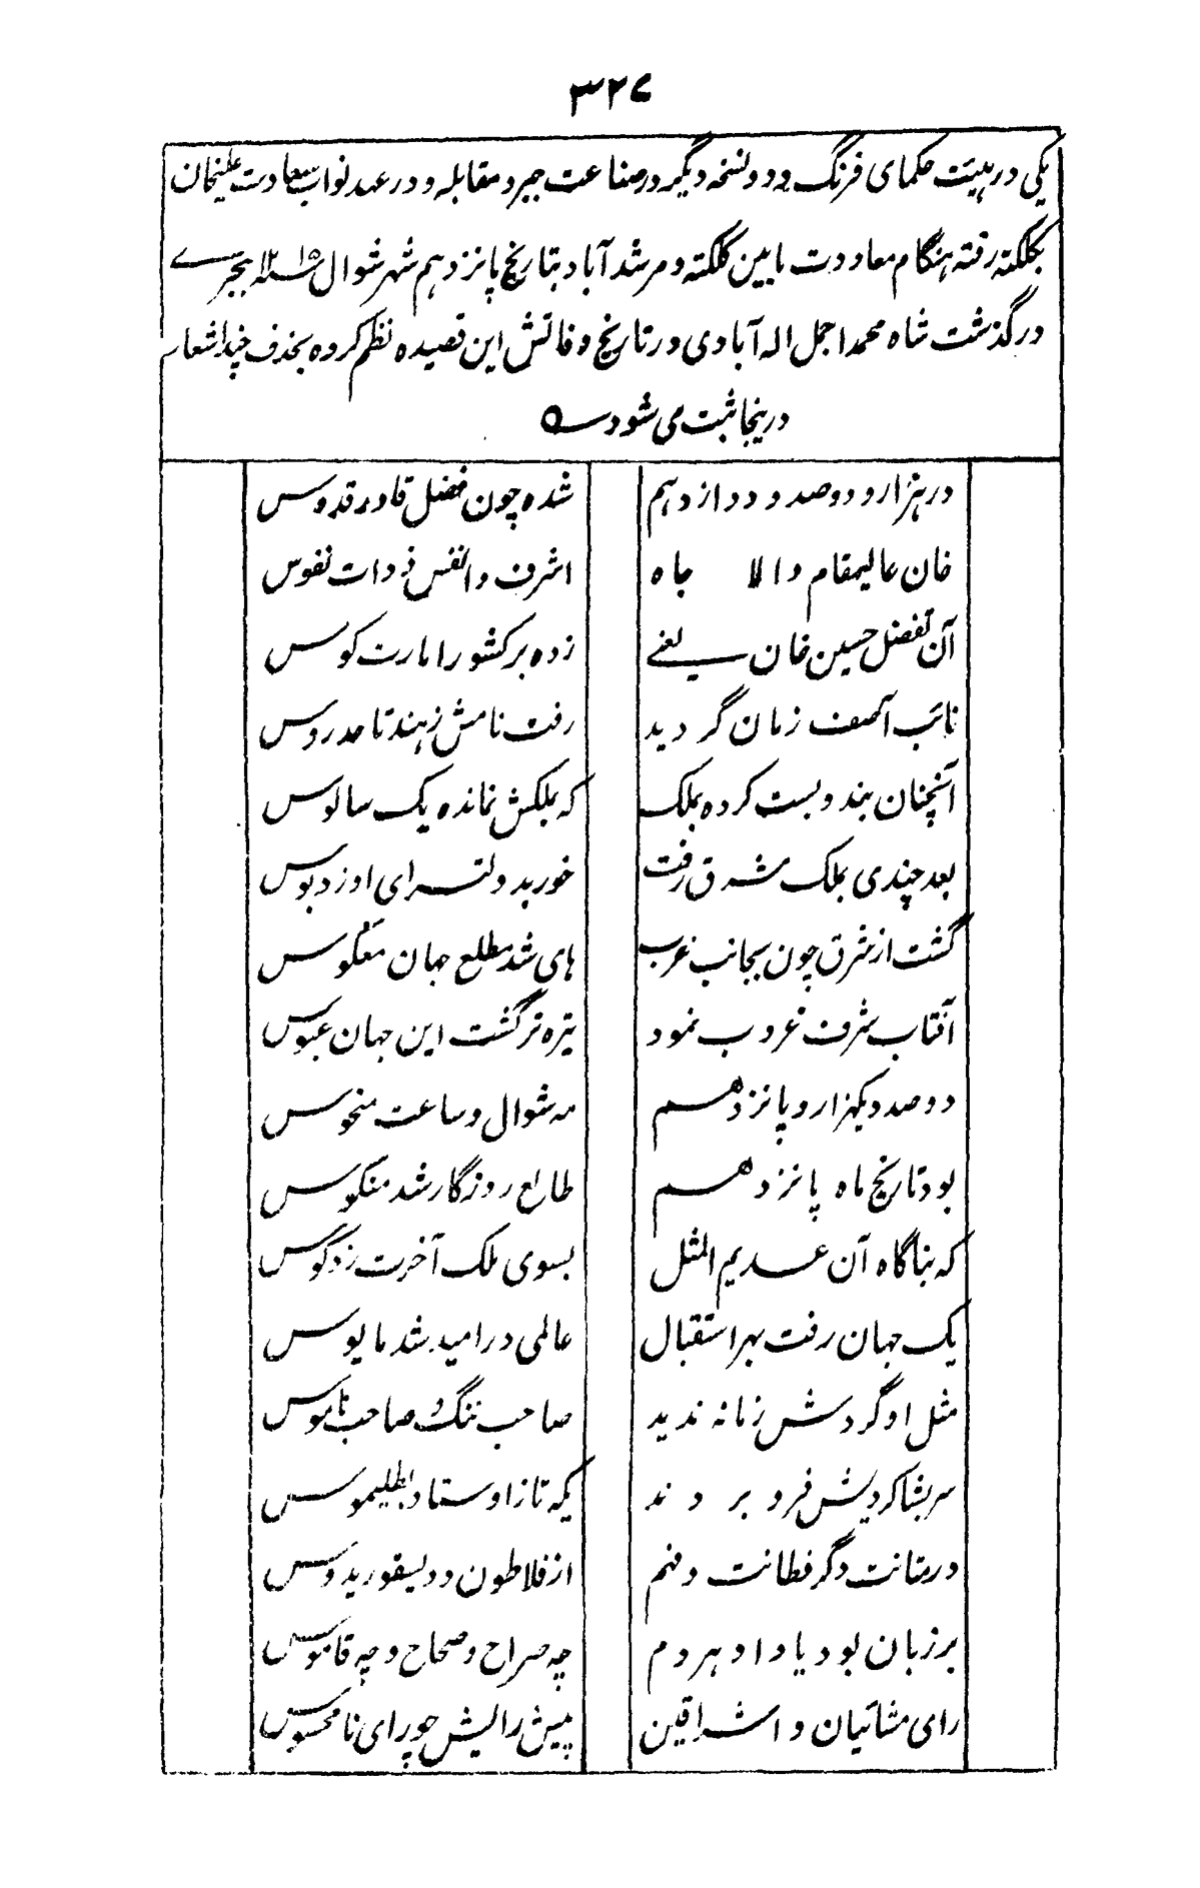 ۳۲۷
یکی در هیئت حکمای فرنگ و دو نسخه دیگر در صناعت جبر و مقابله و در عهد نواب سعادت علیخان
بکلکته رفته هنگام معاودت مابین کلکته و مرشدآباد بتاریخ پانزدهم شهر شوال سنه ۱۲۱۵ هجرے
درگذشت شاه محمد اجمل اله آبادی در تاریخ وفاتش این قصیده نظم کرده بحذف چند اشعار
درینجا ثبت می شود ے
در هزار و دو صد و دوازدهم شده چون فضل قادر قدوس
خان عالیمقام والا جاه اشرف و انفس ذوات نفوس
آن تفضل حسین خان یعنے زده بر کشور امارت کوس
نائب آصف زمان گردید رفت نامش ز هند تا مدروس
آنچنان بند و بست کرده بملک که بملکش نمانده یک سالوس
بعد چندی بملک مشرق رفت خور بدولتسرای او زد بوس
گشت از شرق چون بجانب غرب های شد مطلع جهان معکوس
آفتاب شرف غروب نمود تیره تر گشت این جهان عبوس
دو صد و یکهزار و پانزدهم مه شوال و ساعت منحوس
بود تاریخ ماه پانزدهم طالع روزگار شد منکوس
که بناگاه آن عدیم المثل بسوی ملک آخرت زد کوس
یک جهان رفت بهر استقبال عالمی در امید شد مایوس
مثل او گردش زمانه ندید صاحب ننگ و صاحب ناموس
سر بشاکردیش فرو بردند یکه تاز اوستاد بطلیموس
در متانت دگر فطانت و فهم از فلاطون و دیسقوریدوس
بر زبان بود یاد او هر دم چه صراح و صحاح و چه قاموس
رای مشائیان و اشراقین پیش رایش چو رای نامحسوس